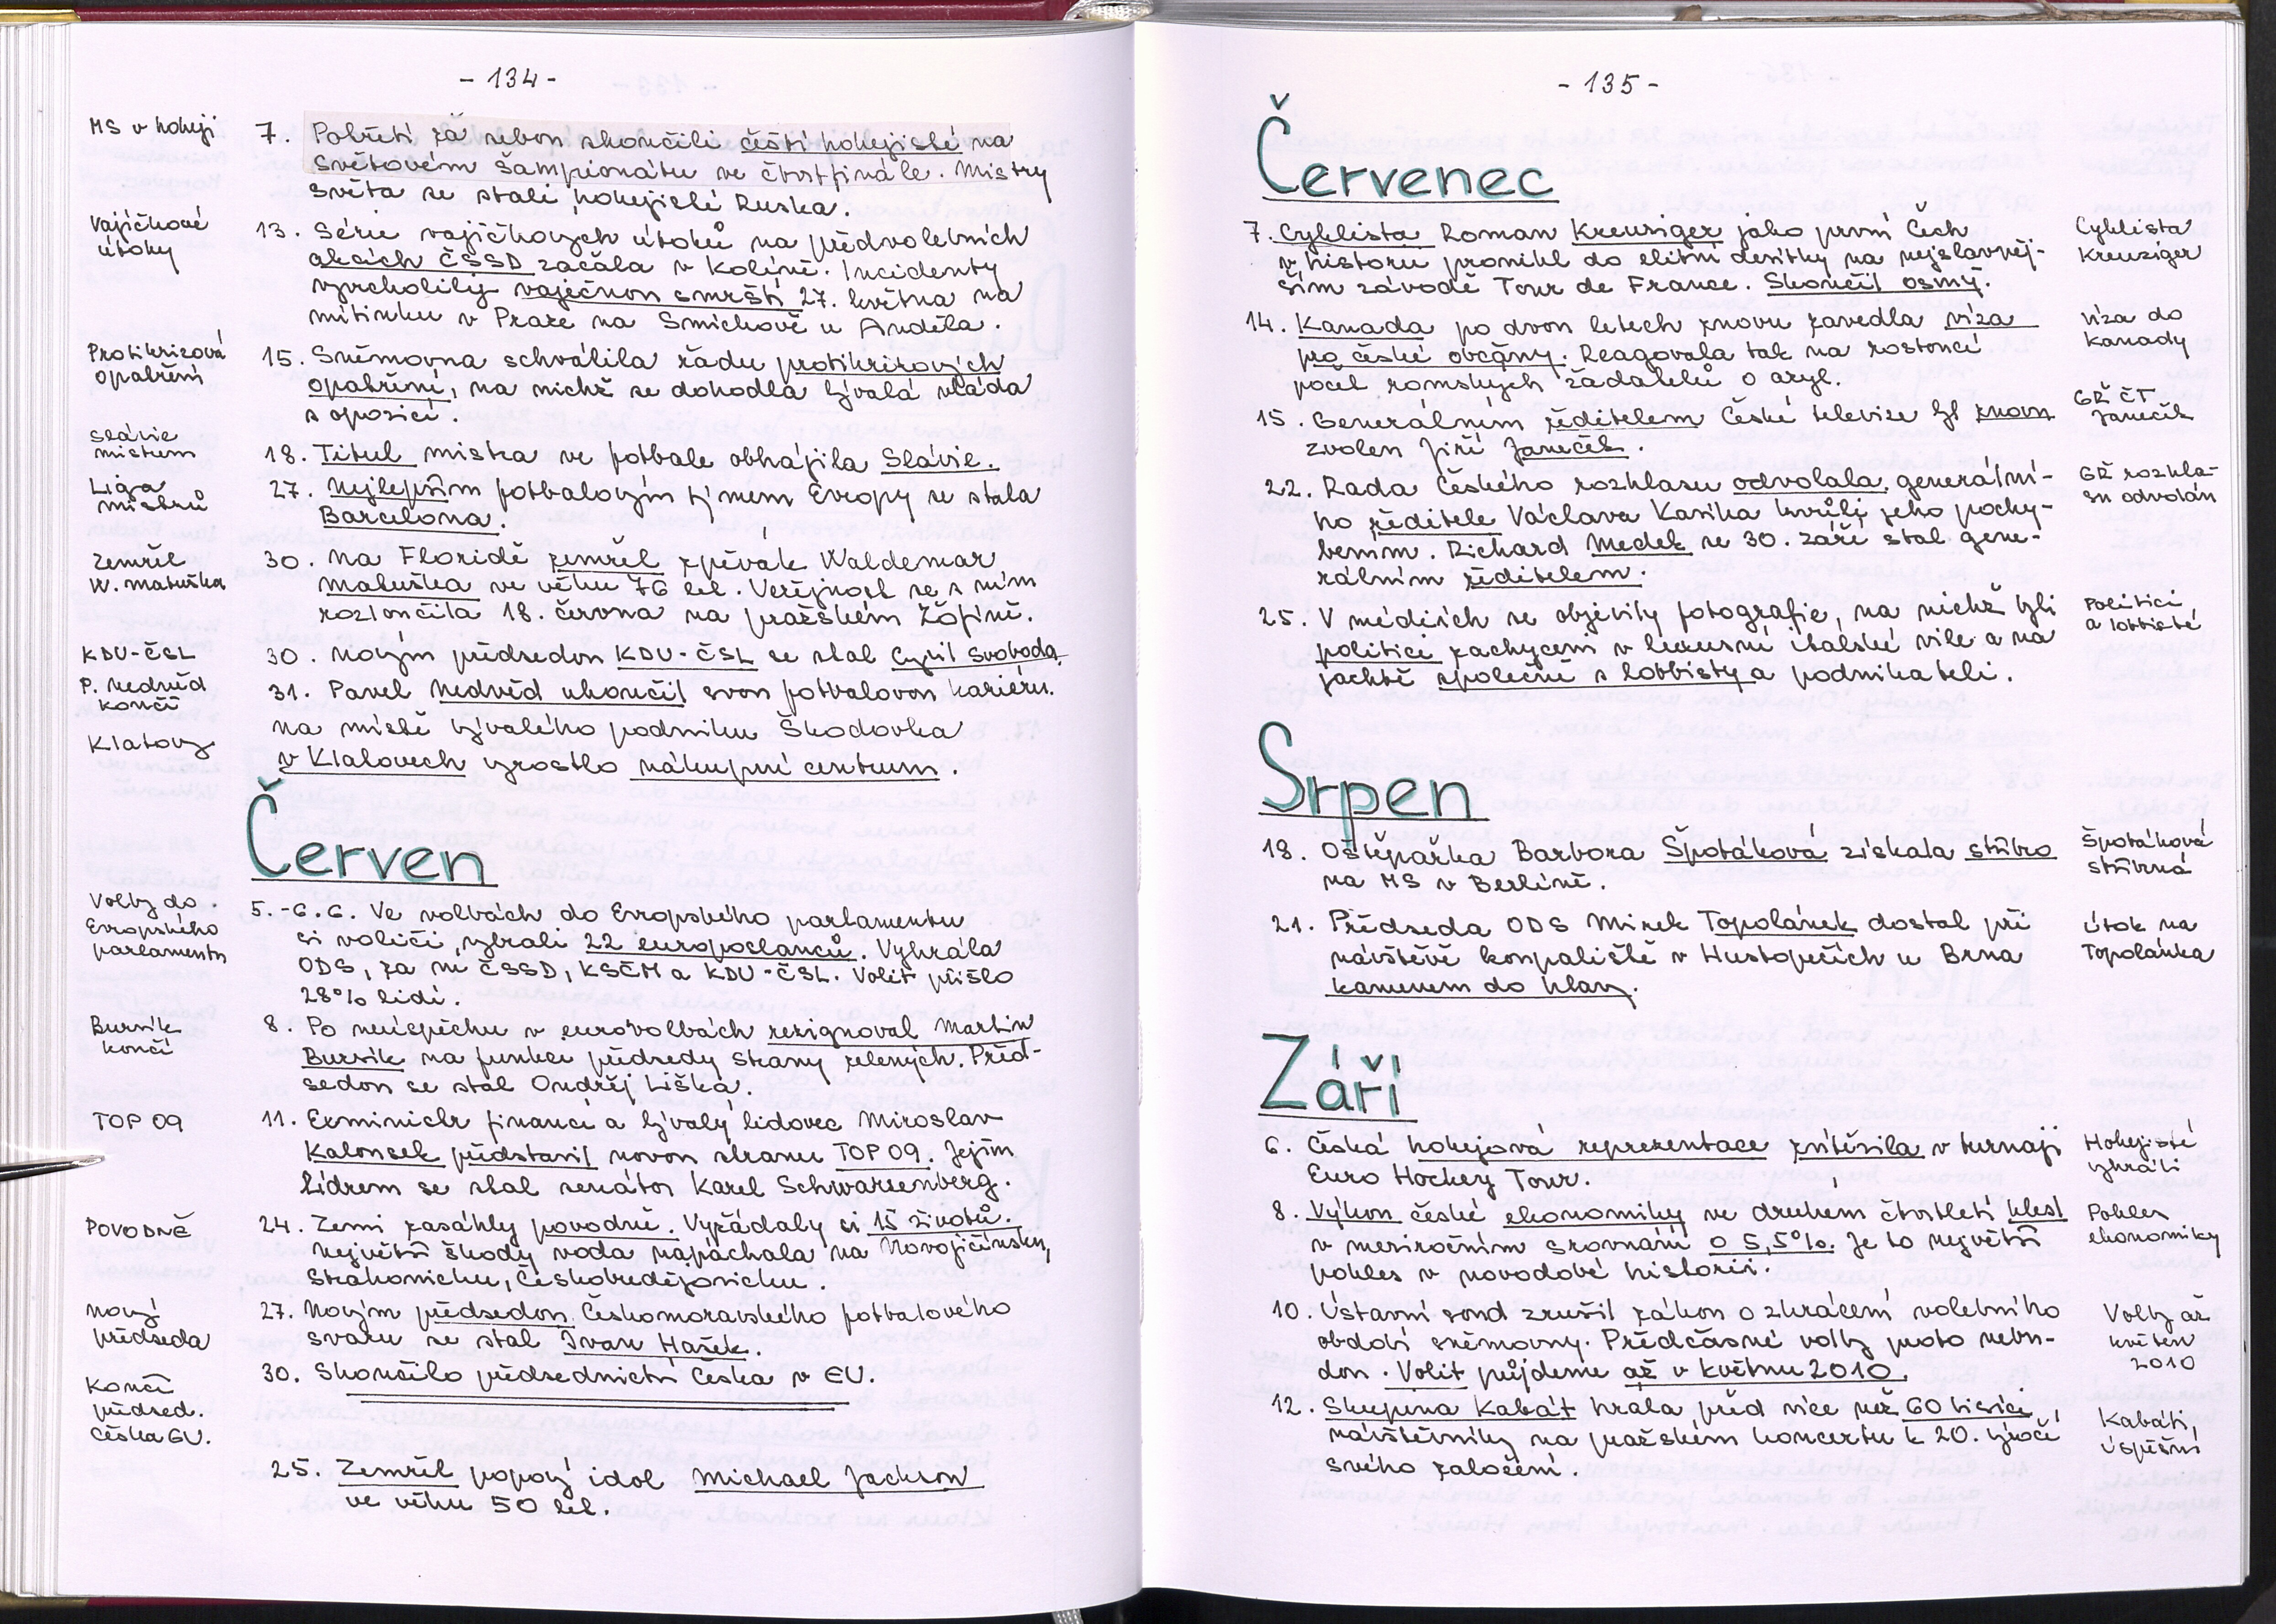 - 134 -
MS v hokeji
7. Potřetí za sebou skončili čeští hokejisté na
světovém šampionátu ve čtvrtfinále. Mistry
světa se stali hokejisté Ruska.
Vajíčkové
útoky
13. Série vajíčkových útoků na předvolebních
akcích ČSSD začala v Kolíně. Incidenty
vyvrcholily vaječnou smrští 27. května na
mítinku v Praze na Smíchově u Anděla.
Protikrizová
opatření
15. Sněmovna schválila řadu protikrizových
opatření, na nichž se dohodla bývalá vláda
s opozicí.
Slávie
mistrem
18. Titul mistra ve fotbale obhájila Slávie.
Liga
mistrů
27. Nejlepším fotbalovým týmem Evropy se stala
Barcelona.
Zemřel
W. Matuška
30. Na Floridě zemřel zpěvák Waldemar
Matuška ve věku 76 let. Veřejnost se s ním
rozloučila 18. června na pražském Žofíně.
KDU-ČSL
30. Novým předsedou KDU-ČSL se stal Cyril Svoboda.
P. Nedvěd
končí
31. Pavel Nedvěd ukončil svou fotbalovou kariéru.
Klatovy
Na místě bývalého podniku Škodovka
v Klatovech vyrostlo nákupní centrum.
Červen
Volby do
Evropského
parlamentu
5.-6.6. Ve volbách do Evropského parlamentu
si voliči vybrali 22 europoslanců. Vyhrála
ODS, za ní ČSSD, KSČM a KDU-ČSL. Volit přišlo
28% lidí.
Bursík
končí
8. Po neúspěchu v eurovolbách rezignoval Martin
Bursík na funkci předsedy Strany zelených. Před-
sedou se stal Ondřej Liška.
TOP 09
11. Exministr financí a bývalý lidovec Miroslav
Kalousek představil novou stranu TOP 09. Jejím
lídrem se stal senátor Karel Schwarzenberg.
POVODNĚ
24. Zemi zasáhly povodně. Vyžádaly si 15 životů.
Největší škody voda napáchala na Novojičínsku,
Strakonicku, Českobudějovicku.
Nový
předseda
27. Novým předsedou Českomoravského fotbalového
svazu se stal Ivan Hašek.
Končí
předsed.
Česka EU.
30. Skončilo předsednictví Česka v EU.
25. Zemřel popový idol Michael Jackson
ve věku 50 let.
- 135 -
Červenec
7. Cyklista Roman Kreuziger jako první Čech
v historii pronikl do elitní desítky na nejslavněj-
ším závodě Tour de France. Skončil osmý.
Cyklista
Kreuziger
14. Kanada po dvou letech znovu zavedla víza
pro české občany. Reagovala tak na rostoucí
počet romských žadatelů o azyl.
Víza do
Kanady
15. Generálním ředitelem České televize byl znovu
zvolen Jiří Janeček.
GŘ ČT
Janeček
22. Rada Českého rozhlasu odvolala generální-
ho ředitele Václava Kasíka kvůli jeho pochy-
bením. Richard Medek se 30. září stal gene-
rálním ředitelem.
GŘ rozhla-
su odvolán
25. V médiích se objevily fotografie, na nichž byli
politici zachyceni v luxusní italské vile a na
jachtě společně s lobbisty a podnikateli.
Politici
a lobbisté
Srpen
18. Oštěpařka Barbora Špotáková získala stříbro
na MS v Berlíně.
Špotáková
stříbrná
21. Předseda ODS Mirek Topolánek dostal při
návštěvě koupaliště v Hustopečích u Brna
kamenem do hlavy.
Útok na
Topolánka
Září
6. Česká hokejová reprezentace zvítězila v turnaji
Euro Hockey Tour.
Hokejisté
vyhráli
8. Výkon české ekonomiky ve druhém čtvrtletí klesl
v meziročním srovnání o 5,5%. Je to největší
pokles v novodobé historii.
Pokles
ekonomiky
10. Ústavní soud zrušil zákon o zkrácení volebního
období sněmovny. Předčasné volby proto nebu-
dou. Volit půjdeme až v květnu 2010.
Volby až
květen
2010
12. Skupina Kabát hrála před více než 60 tisíci
návštěvníky na pražském koncertu k 20. výročí
svého založení.
Kabáti
úspěšní